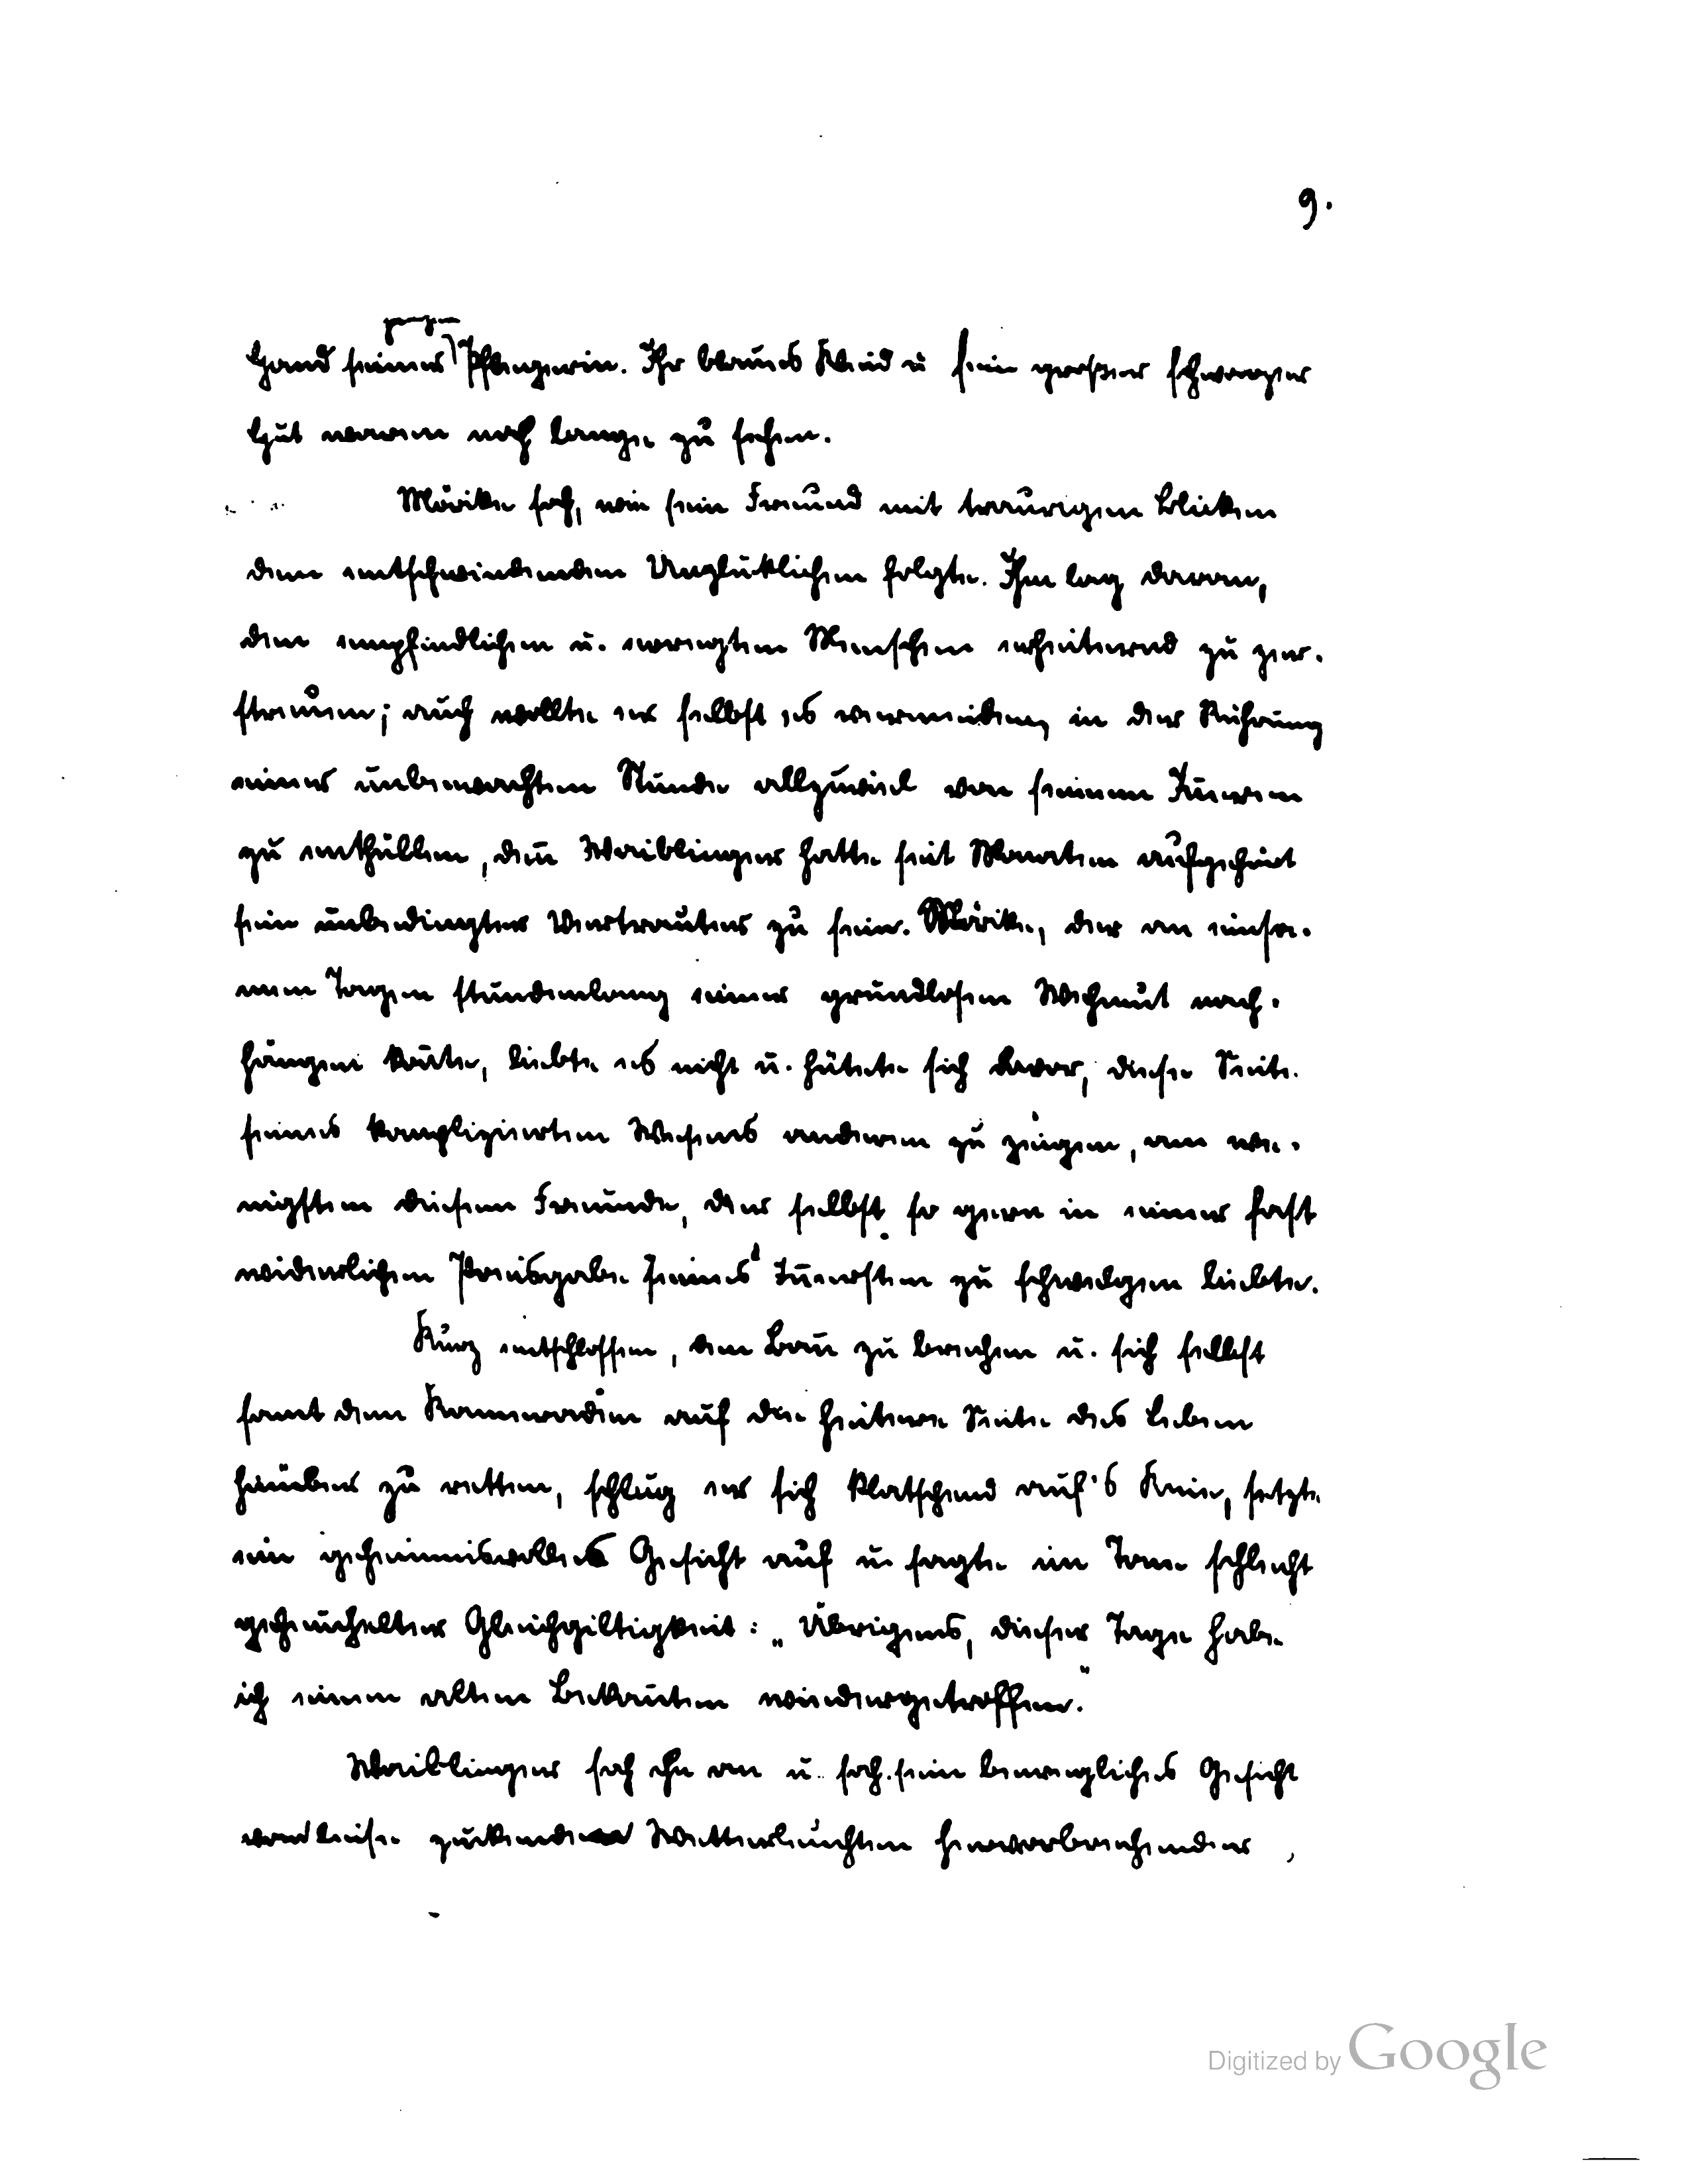 9.
jungen
Hand seiner Pflegerin. Ihr blaues Kleid u sein großer schwarzer
Hut waren noch lange zu sehen.
Mörike sah, wie sein Freund mit traurigen Blicken
dem entschwindenden Unglücklichen folgte. Ihm lag daran,
den empfindlichen u. erregten Menschen erheiternd zu zer-
streuen; auch wollte er selbst es vermeiden, in der Rührung
einer unbewachten Stunde allzuviel von seinem Innern
zu enthüllen, den̅ Waiblinger hatte seit Monaten aufgehört
sein unbedingter Vertrauter zu sein. Mörike, der an einsa-
men Tagen stundenlang einer grundlosen Wehmut nach-
hängen kon̅te, liebte es nicht u. hütete sich davor, diese Seite
seines komplizierten Wesens anderen zu zeigen, am we-
nigsten diesem Freunde, der selbst so gern in einer fast
widerlichen Preisgabe seines In̅ersten zu schwelgen liebte.
Kurz entschlossen, den Ban̅ zu brechen u. sich selbst
samt dem Kameraden auf die heitere Seite des Lebens
hinüber zu retten, schlug er sich klatschend auf's Knie, setzte
ein geheimnisvolles Gesicht auf u sagte im Tone schlecht
geheuchelter Gleichgiltigkeit: „Übrigens, dieser Tage habe
ich einen alten Bekan̅ten wiedergetroffen."
Waiblinger sah ihn an u. sah sein bewegliches Gesicht
vom leise zuckenden Wetterleuchten hervorbrechender
Digitized by Google